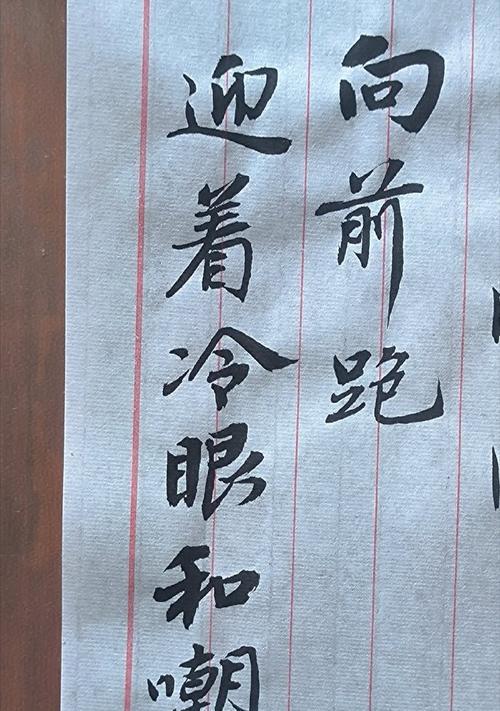 向前跑
迎着冷眼和嘲